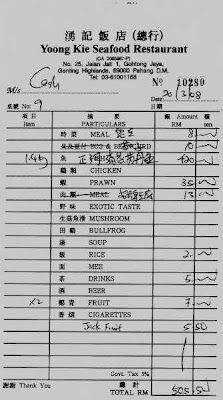 湧記飯店(總行)
Yoong Kie Seafood Restaurant
No. 25, Jalan Jati 1, Gohtong Jaya,
Genting Highlands, 69000 Pahang D.M.
Tel: 03-61001168
M/s Cash No 10280
Date 20/3/08
桌號 No: 9
項目 Item 摘要 PARTICULARS 銀 Amount RM 仙 sen
時菜 MEAL 8
EGG & BEANCURD 10
1.4 魚 正 420
雞鴨 CHICKEN
蝦 PRAWN 35
MEAL 13
野味 EXOTIC TASTE
生蒸魚滑 MUSHROOM
田雞 BULLFROG
湯 SOUP
飯 RICE 2.
面 MEE
茶 DRINKS 5
酒 BEER
x2 椰青 FRUIT 7
香烟 CIGARETTES
Jack Fruit 5 50
Govt. Tax 5%
謝謝 Thank You 總計 TOTAL RM 505.50